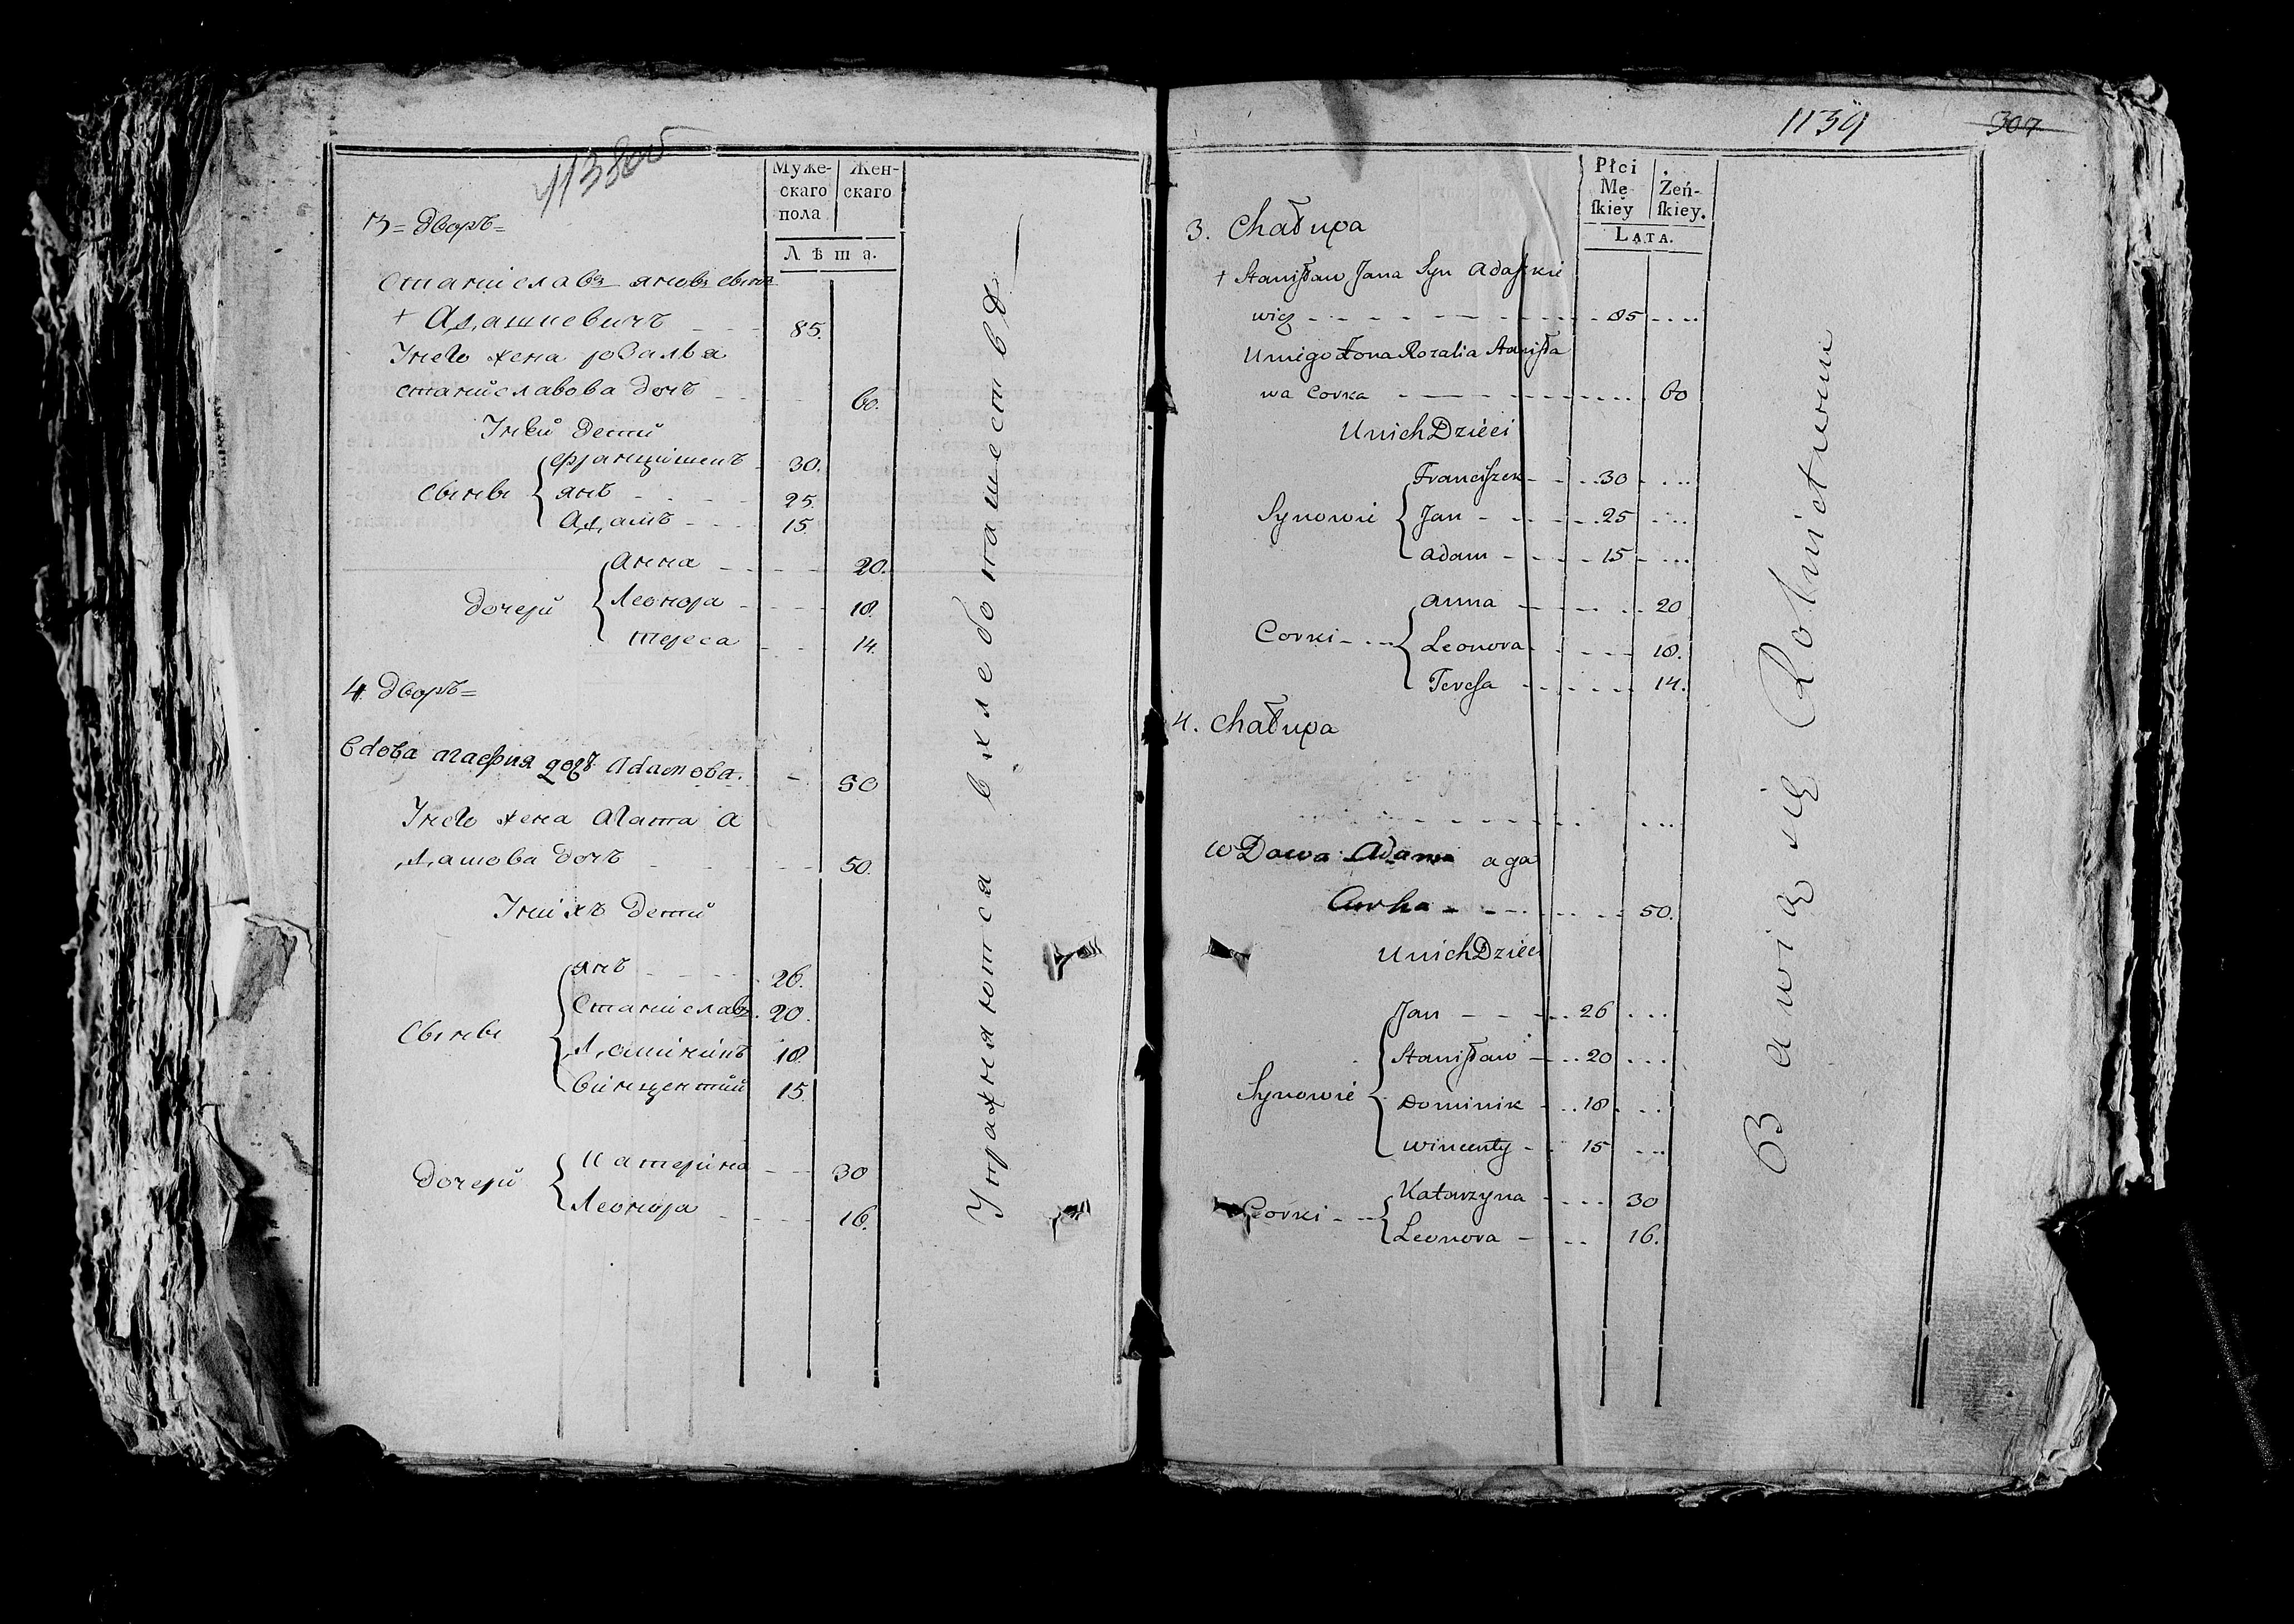 1138об
Муже-
скаго
пола
Жен-
скаго
Лѣта.
3= дворъ=
Станиславъ яновъ сынъ
+ Адашкевичъ 85.
Унего жена розалья
станиславова дочъ 60.
Унихъ дети
Сынвы
Францишекъ 30.
янъ 25.
Адамъ 15.
дочери
анна 20.
Леонора 18.
тереса 14.
4 дворъ=
Вдова дочъ Адамова. 50
Унего жена Агата а
дамова дочъ 50.
Унихъ дети
Сынвы
янъ 26.
Станиславъ 20.
Доминикъ 18.
Винцентий 15.
дочери
Катерина 30
Леонора 16.
Упражняются в хлебопашестве
1139
307
Płci
Mę-
ſkiey
Żeń-
ſkiey.
LATA.
3. Chałupa
+ Stanisław Jana Syn Adaszkie
wicz 85
Uniego Żona Rozalia Stanisła
wa Corka 60
Unich Dzieci
Synowie
Franciszek 30
Jan 25
Adam 15
Corki
Anna 20
Leonora 18.
Teressa 14.
4. Chałupa
wDowa Adama aga
Corka 50.
Unich Dzieci
Synowie
Jan 26
Stanisław 20
Dominik 18.
Wincenty 15
Corki
Katarzyna 30
Leonora 16.
Bawią się Rolnictwem